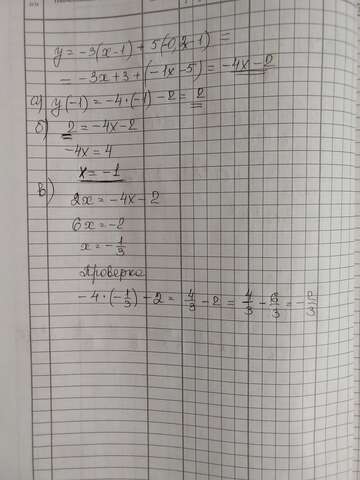 y = -3(x-1) + 5(-0,2x-1) =
= -3x+3+(-1x-5) = -4x-2
а) y(-1) = -4·(-1) - 2 = 2
б) 2 = -4x-2
-4x = 4
x = -1
в)
2x = -4x-2
6x = -2
x = -1/3
Проверка
-4·(-1/3) - 2 = 4/3 - 2 = 4/3 - 6/3 = -2/3